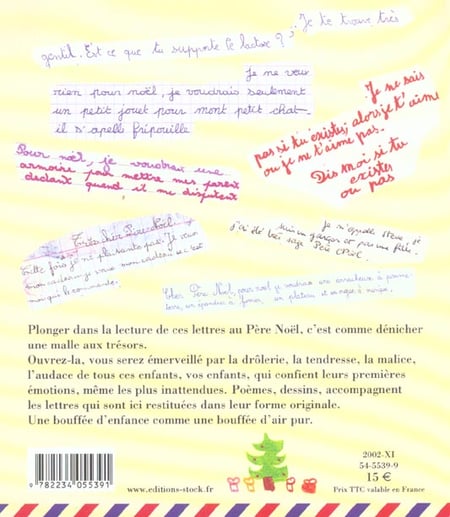 ...Je te trouve très
gentil. Est ce que tu supporte le lactose ?
Je ne veux
rien pour noël, je voudrais seulement
un petit jouet pour mont petit chat
il s'apelle fripouille
Je ne sais
pas si tu existes, alors je t'aime
ou je ne t'aime pas.
Dis moi si tu
existes
ou pas
Pour noël, je voudrais une
armoire pour mettre mes parent
dedant quand il me disputent
Je m'apelle
un garçon et pas une fille.
j'ai été très sage Père Noël.
Très cher Père Noël
Cette fois je ne plaisante pas. Je veux
mon cadeau
moi qui le commande.
Cher Père Noël, pour noël je voudrais un
Plonger dans la lecture de ces lettres au Père Noël, c'est comme dénicher
une malle aux trésors.
Ouvrez-la, vous serez émerveillé par la drôlerie, la tendresse, la malice,
l'audace de tous ces enfants, vos enfants, qui confient leurs premières
émotions, même les plus inattendues. Poèmes, dessins, accompagnent
les lettres qui sont ici restituées dans leur forme originale.
Une bouffée d'enfance comme une bouffée d'air pur.
9 782234 055391
www.editions-stock.fr
2002-XI
54-5539-9
15 €
Prix TTC valable en France